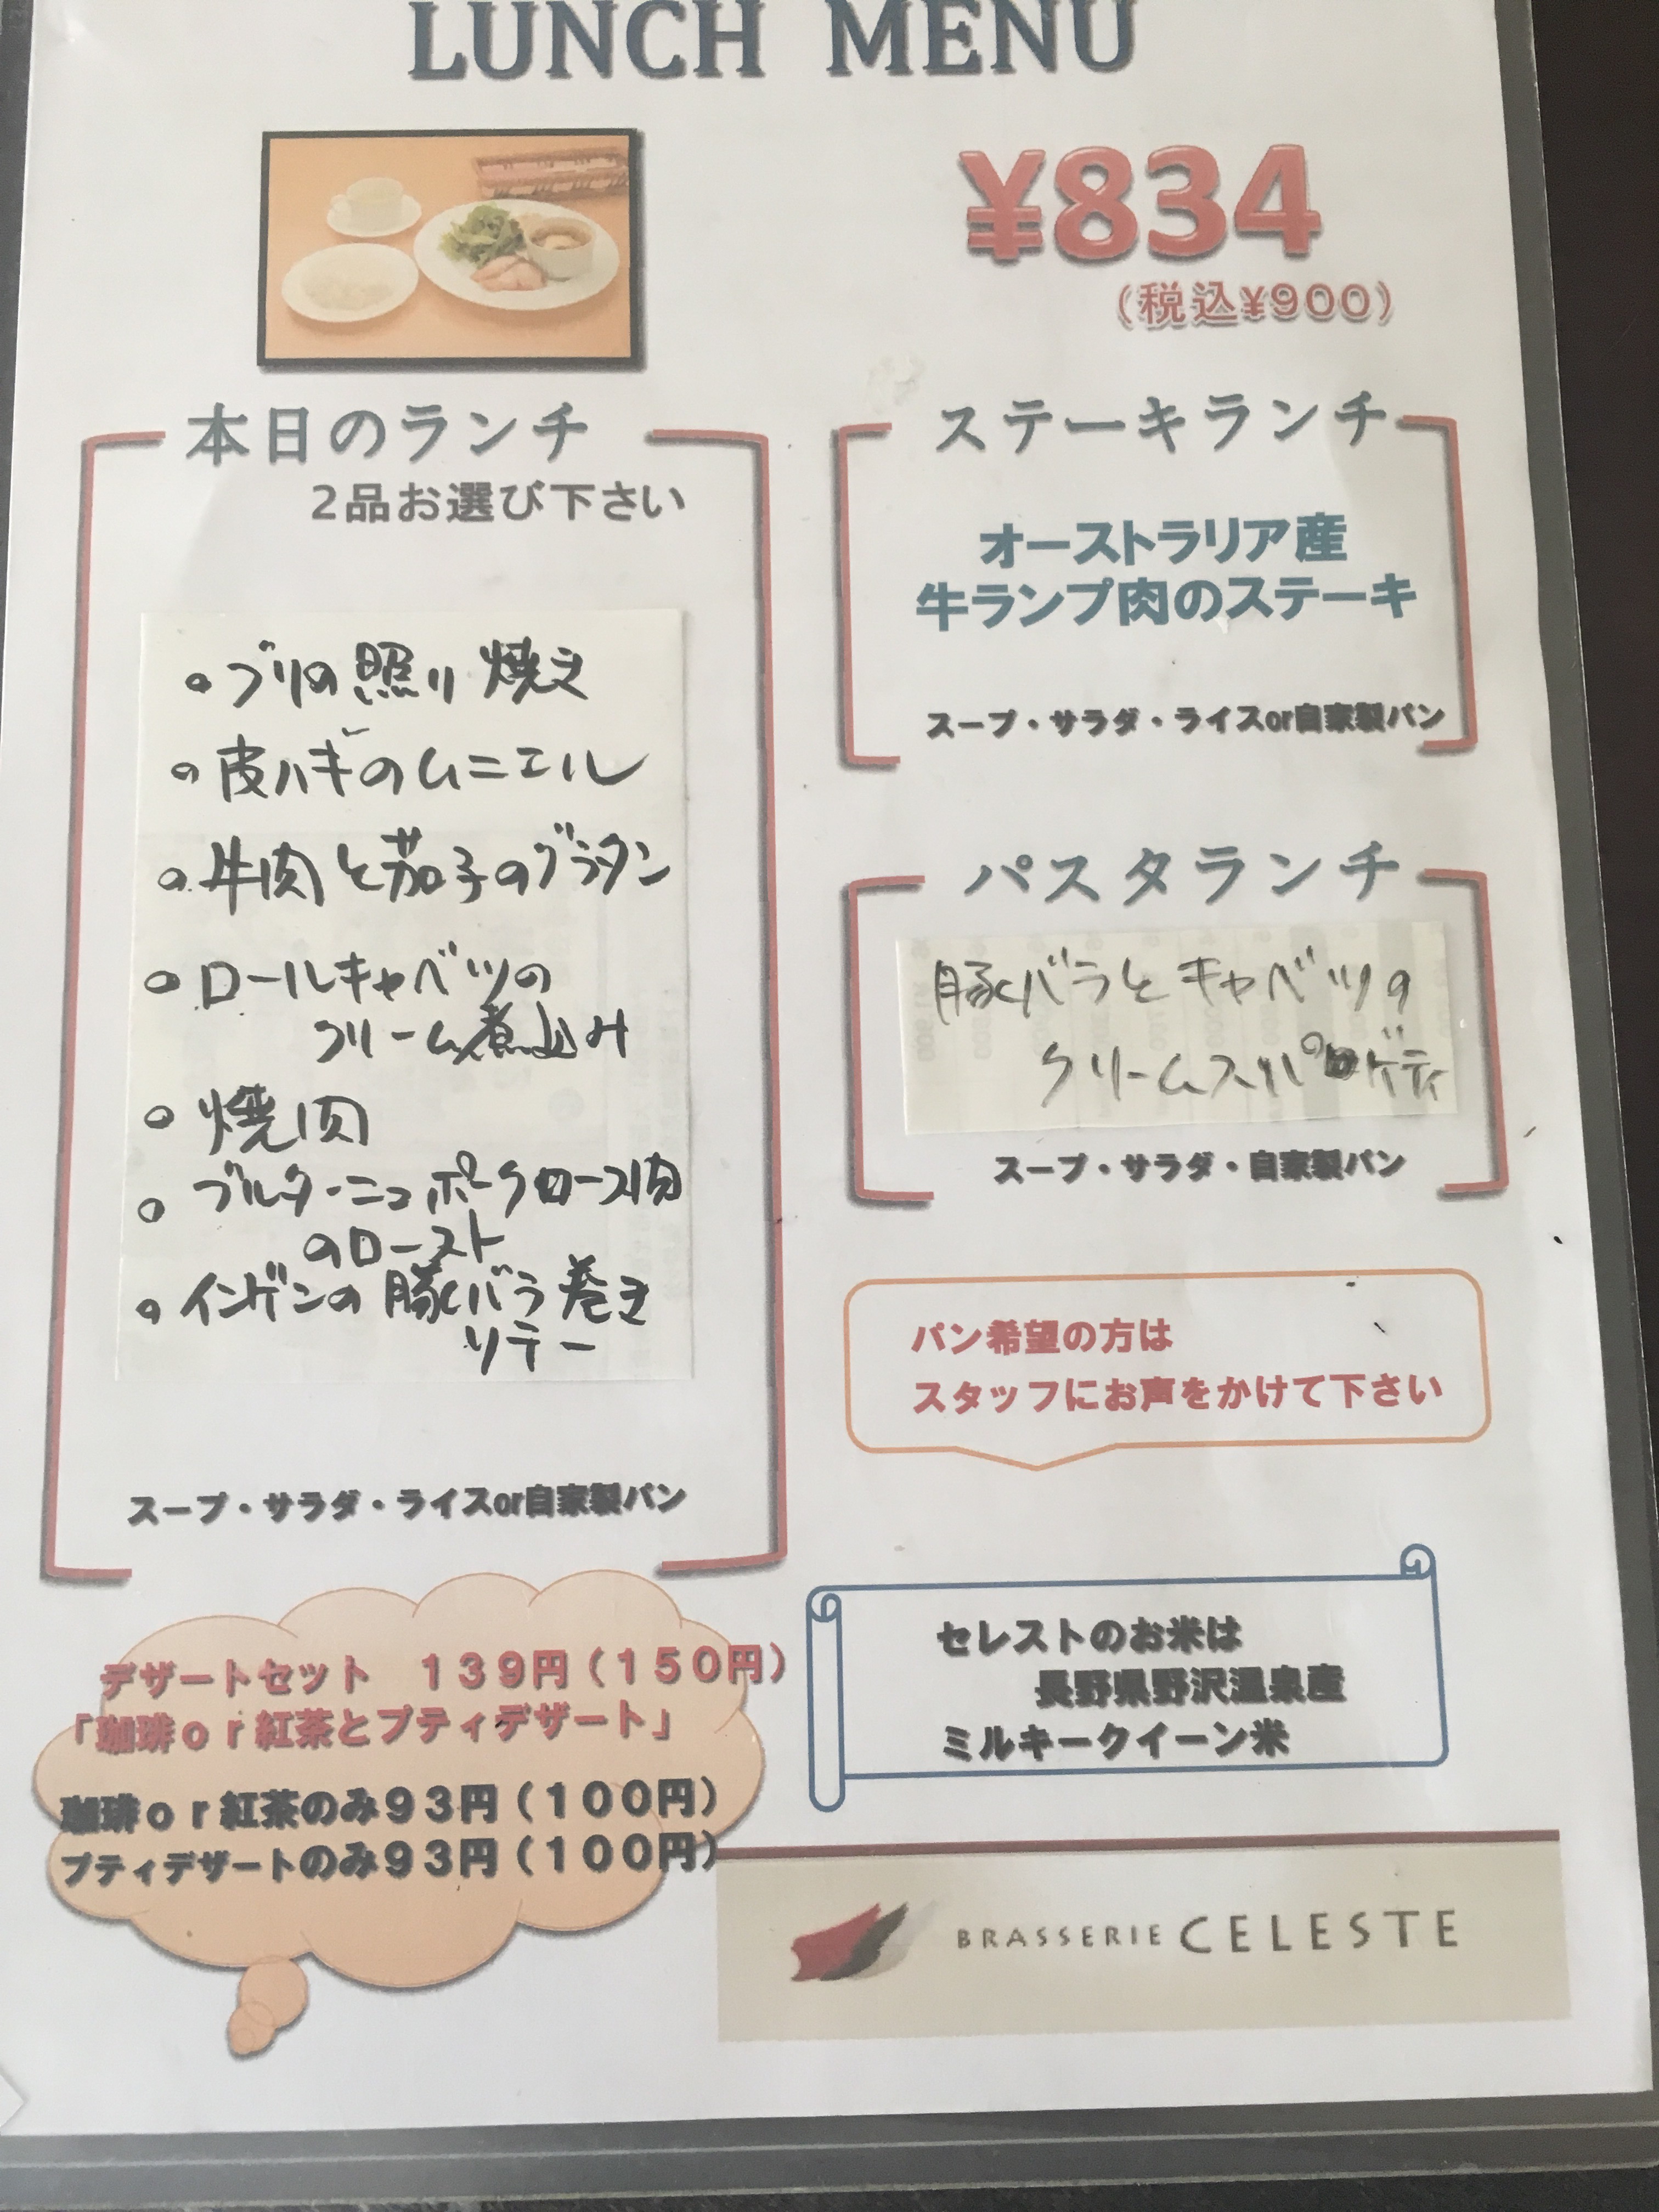 LUNCH MENU
¥834
(税込¥900)
本日のランチ
2品お選び下さい
ブリの照り焼き
皮ハギのムニエル
牛肉と茄子のグラタン
ロールキャベツの
クリーム煮込み
焼肉
ブルターニュポークロース肉
のロースト
インゲンの豚バラ巻き
ソテー
スープ・サラダ・ライスor自家製パン
ステーキランチ
オーストラリア産
牛ランプ肉のステーキ
スープ・サラダ・ライスor自家製パン
パスタランチ
豚バラとキャベツの
クリームスパゲティ
スープ・サラダ・自家製パン
パン希望の方は
スタッフにお声をかけて下さい
デザートセット 139円(150円)
「珈琲or紅茶とプティデザート」
珈琲or紅茶のみ93円(100円)
プティデザートのみ93円(100円)
セレストのお米は
長野県野沢温泉産
ミルキークイーン米
BRASSERIE CELESTE